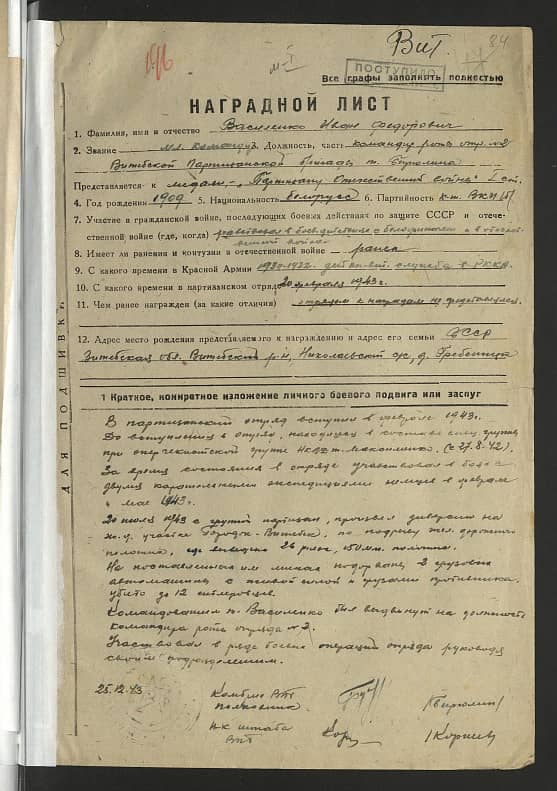 Вит.
84
ПОСТУПИЛО
Все графы заполнять полностью
НАГРАДНОЙ ЛИСТ
1. Фамилия, имя и отчество Василенко Иван Федорович
2. Звание мл. командир. Должность, часть командир роты отр. №2
Витебской Партизанской бригады т. Бирюлина
Представляется к медали - "Партизану Отечественной войны" I ст.
4. Год рождения 1909 5. Национальность белорус 6. Партийность к-т. ВКП(б)
7. Участие в гражданской войне, последующих боевых действиях по защите СССР и отече-
ственной войне (где, когда) участвовал в боев. действиях с белофиннами и в отечест-
венной войне
8. Имеет ли ранения и контузии в отечественной войне ранен
9. С какого времени в Красной Армии 1930-1932 действит. служба в РККА
10. С какого времени в партизанском отряде 20 февраля 1943 г.
11. Чем ранее награжден (за какие отличия) отрядом к наградам не представлялся
12. Адрес место рождения представляемого к награждению и адрес его семьи БССР
Витебская обл. Витебский р-н, Николаевский с/с, д.
ДЛЯ ПОДШИВКИ
1 Краткое, конкретное изложение личного боевого подвига или заслуг
В партизанский отряд вступил в феврале 1943 г.
До вступления в отряд, находился в составе спец. группы
при оперчекистской группе НКВД т. Максименко. (с 27.8.42).
За время состояния в отряде участвовал в боях с
двумя карательными экспедициями немцев в феврале
и мае 1943 г.
20 июля 1943 с группой партизан, произвел диверсию на
ж.д. участке Городок-Витебск, по подрыву жел. дорожного
полотна, где взорвано 26 рельс, 150 мм. полотна.
На поставленных им минах подорваны 2 грузовые
автомашины с живой силой и грузами противника.
убито до 12 гитлеровцев.
Командованием т. Василенко был выдвинут на должность
командира роты отряда №2.
Участвовал в ряде боевых операций отряда руководя
своим подразделением.
25.12.43
Комбриг ВПБ
полковник
/Бирюлин/
Н-к штаба
ВПБ
/Корнев/